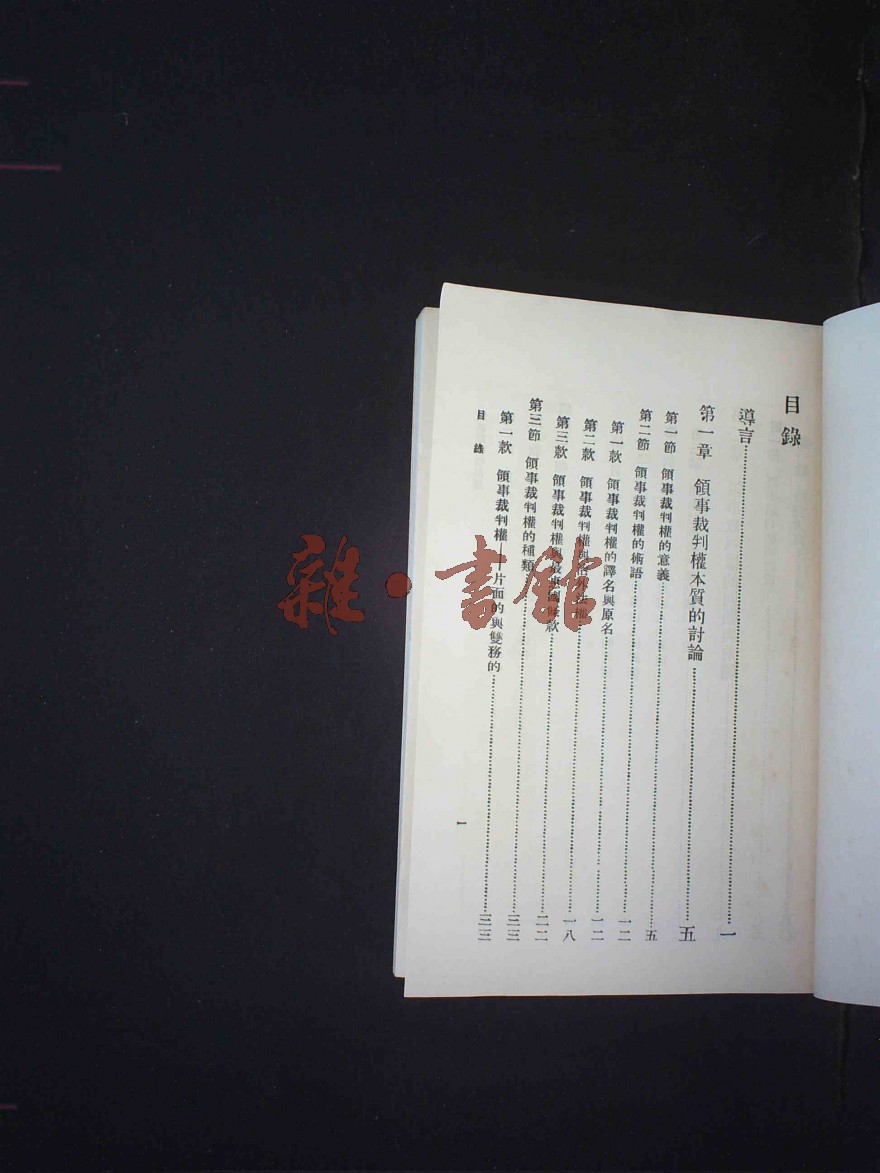 目錄
導言……一
第一章 領事裁判權本質的討論……五
第一節 領事裁判權的意義……五
第二節 領事裁判權的術語……一二
第一款 領事裁判權的譯名與原名……一二
第二款 領事裁判權與治外法權……一八
第三款 領事裁判權與最惠國條款……二二
第三節 領事裁判權的種類……
第一款 領事裁判權——片面的與雙務的……
目錄
一
雜·書館